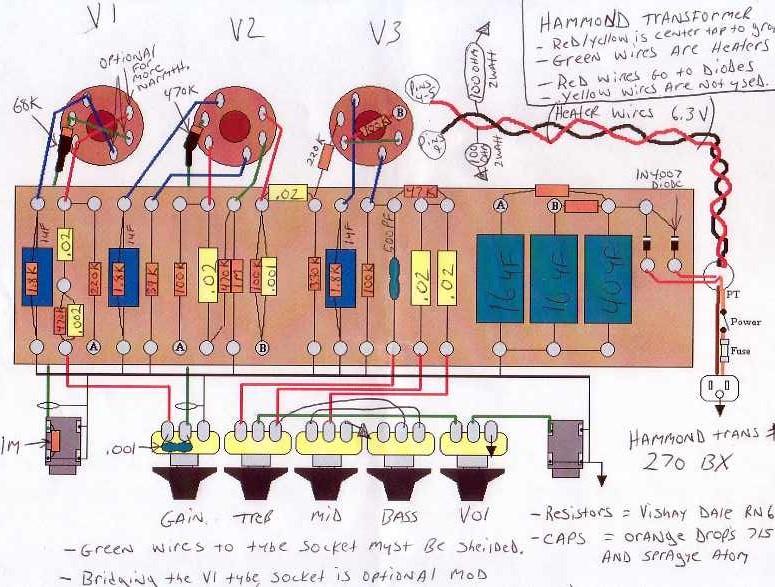 V1
V2
V3
HAMMOND TRANSFORMER
- Red/yellow is center tap to
- Green wires Are Heaters
- Red wires Go to Diodes
- Yellow wires Are Not used.
(Heater wires 6.3V)
OPTIONAL
FOR
MORE
WARMTH.
68K
470K
220K
100K
B
Pins
4-5
Pin
100 OHM
2 WATT
100
2 WATT
IN4007
DIODE
.02
47K
A
B
1.8K
1 uF
.02
470K
.002
220K
1.8K
1 uF
39K
100K
.02
470K
1M
100K
.001
330K
1.8K
1 uF
100K
500PF
.02
.02
16 uF
16 uF
40 uF
A
A
B
PT
Power
Fuse
1M
.001
GAIN
TREB
MID
BASS
VOl
HAMMOND TRANS #
270 BX
- Resistors = Vishay Dale RN6
- CAPS = orange Drops 715
AND Sprague Atom
- Green wires to tube socket must Be sheilded.
- Bridging the V1 tube socket is optional mod